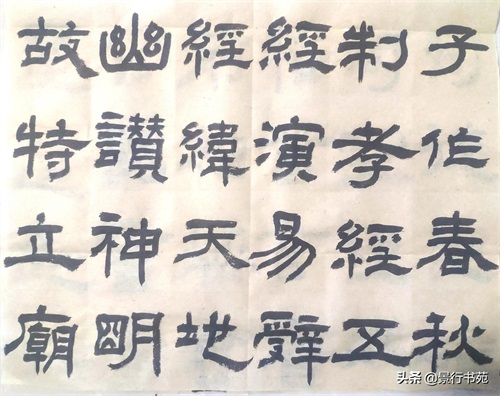 子作春秋
制孝經五
經演易辭
經緯天地
幽讚神明
故特立廟
头条 @景行书苑